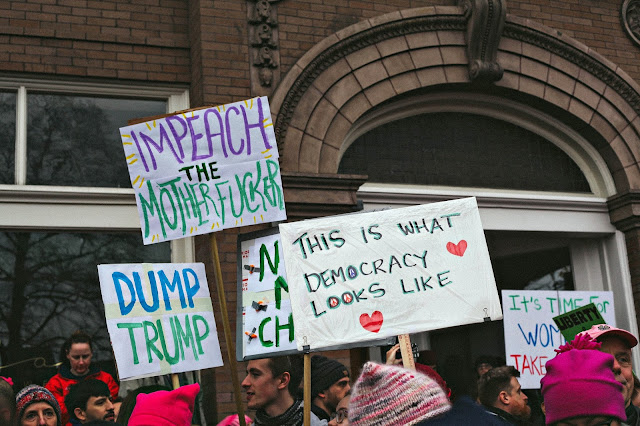 IMPEACH
THE
MOTHERFUCKER
THIS IS WHAT
DEMOCRACY
LOOKS LIKE
DUMP
TRUMP
N
CH
IT'S TIME FOR
WOM
TAKE
LIBERTY